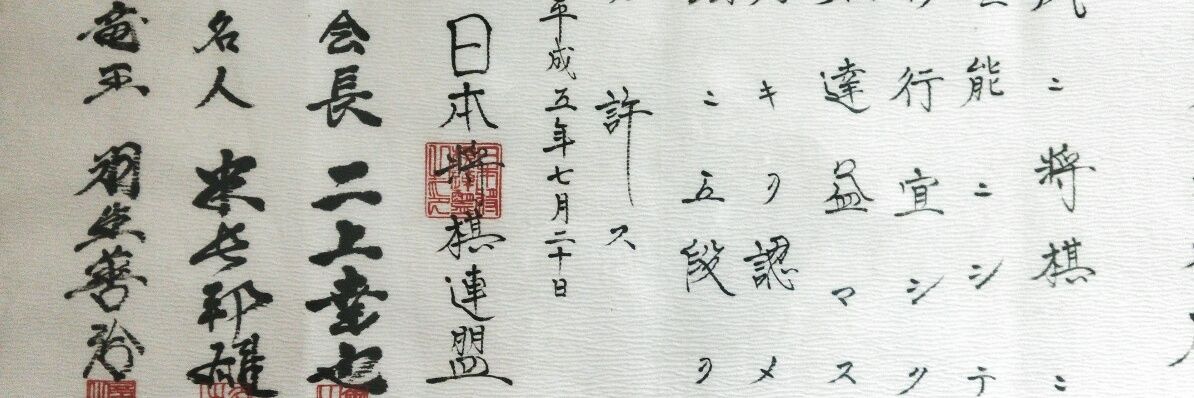 ニ将棋ニ
能ニシテ
行宜シク
達益マス
キヲ認メ
ニ五段ヲ
許ス
平成五年七月二十日
日本将棋連盟
会長 二上達也
名人 米長邦雄
竜王 羽生善治